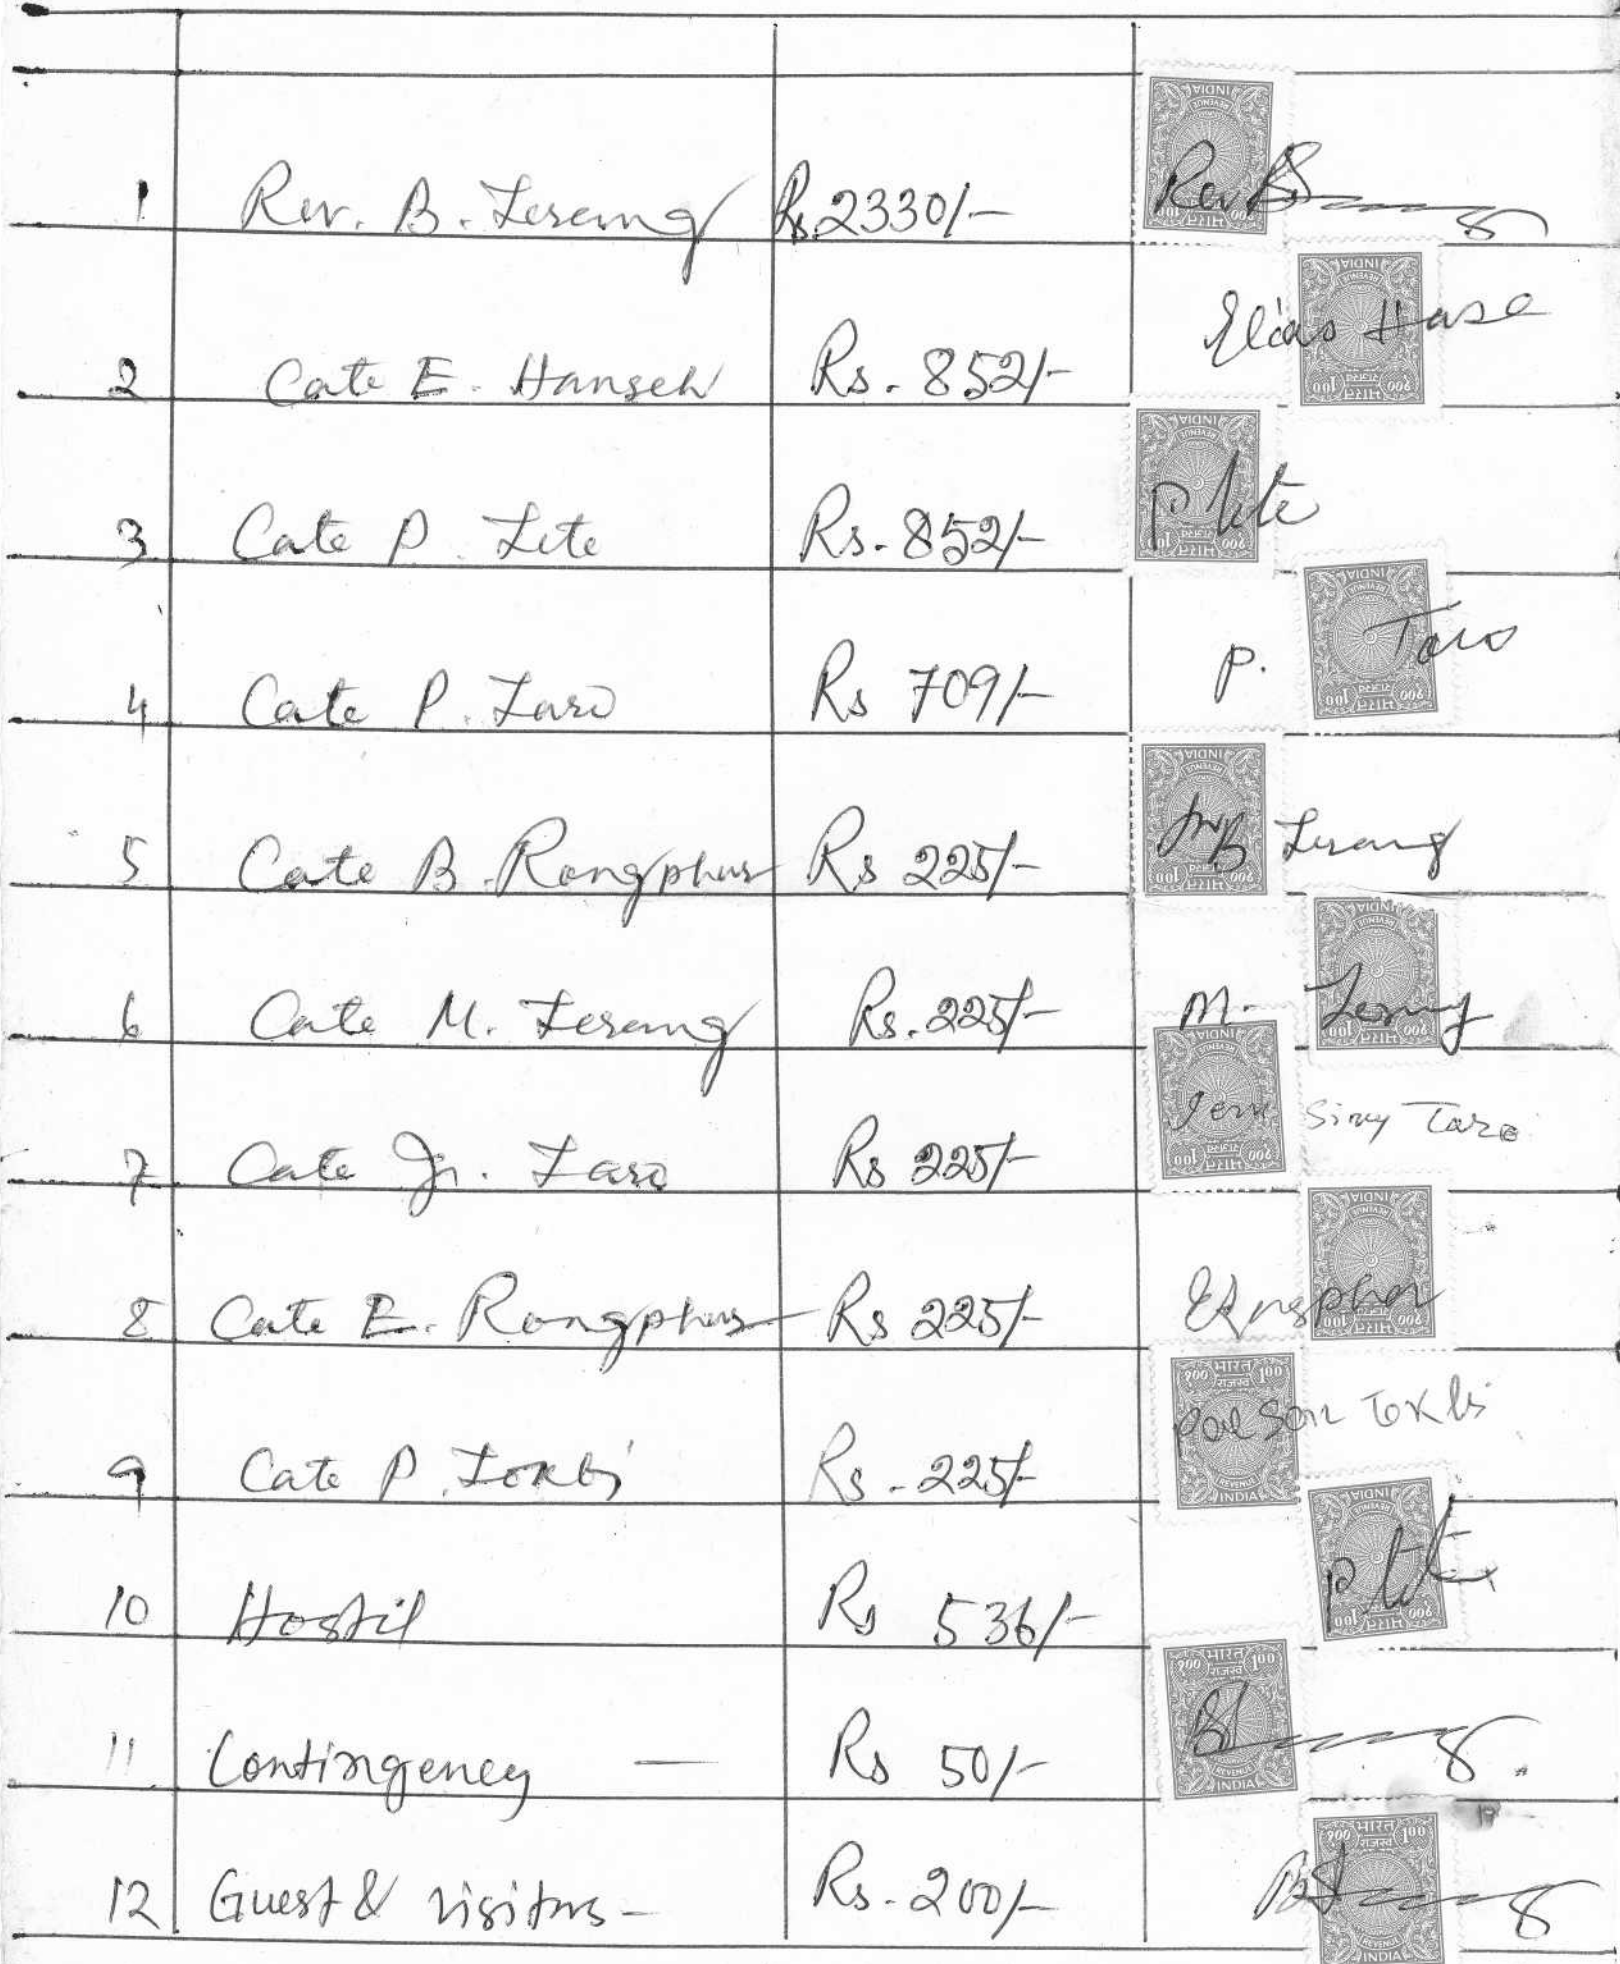 1 Rev. B. Terang Rs. 2330/- Rev B
2 Cate E. Hanseh Rs. 852/- Elias Hase
3 Cate P. Tete Rs. 852/- P tete
4 Cate P. Taro Rs 709/- P. Taro
5 Cate B. Rongphar Rs 225/- B Terang
6 Cate M. Terang Rs. 225/- M. Terang
7 Cate Jn. Taro Rs 225/- Sing Taro
8 Cate E. Rongphar Rs 225/- ERongphar
9 Cate P. Tokbi Rs. 225/- Tokbi
10 Hostil Rs 536/- P tete
11 Contingency — Rs 50/-
12 Guest & visitors - Rs. 200/-
भारत
१00 राजस्व 100
REVENUE
INDIA